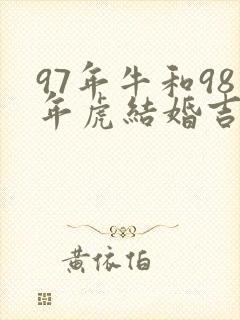 97年牛和98
年虎結婚吉
黃依伯